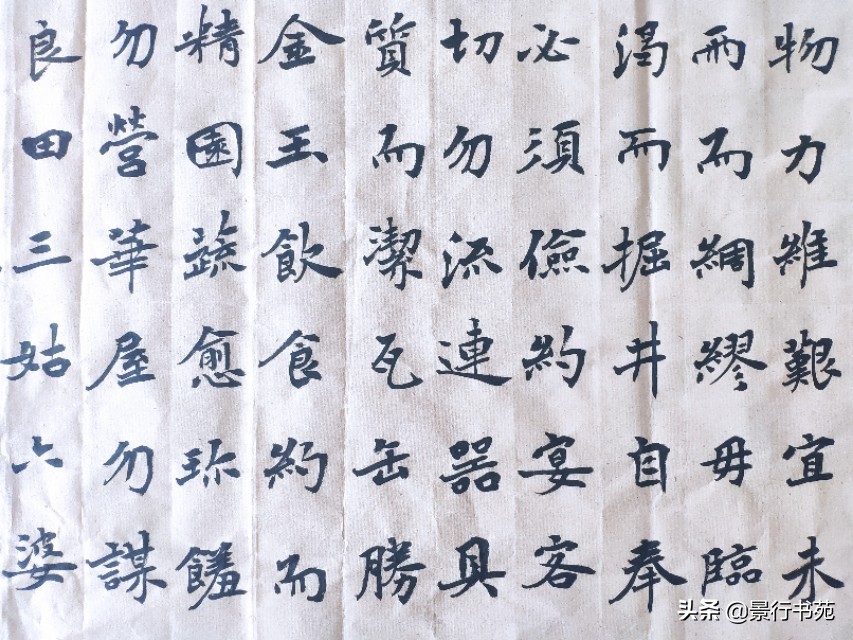 物力維艱宜未
雨而綢繆毋臨
渴而掘井自奉
必須儉約宴客
切勿流連器具
質而潔瓦缶勝
金玉飲食約而
精園蔬愈珍饈
勿營華屋勿謀
良田三姑六婆
头条 @景行书苑